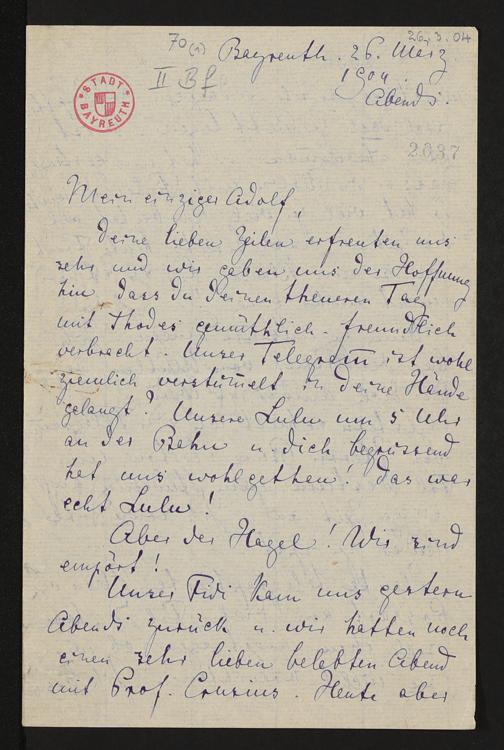 26.3.04
70(1)
II Bf
STADT BAYREUTH
Bayreuth. 26. März
1904.
Abends.
2037
Mein einziger Adolf,
Deine lieben Zeilen erfreuten uns
sehr und wir gaben uns der Hoffnung
hin, dass du deinen theueren Tag
mit Thodes gemüthlich-freundlich
verbracht. Unser Telegram̅ ist wohl
ziemlich verstüm̅elt in deine Hände
gelangt? Unsere Lulu um 5 Uhr
an der Bahn u. dich begrüssend
hat uns wohlgethan! Das war
echt Lulu!
Aber der Hagel! Wir sind
empört!
Unser Fidi kam uns gestern
Abends zurück u. wir hatten noch
einen sehr lieben belebten Abend
mit Prof. Crusius. Heute aber